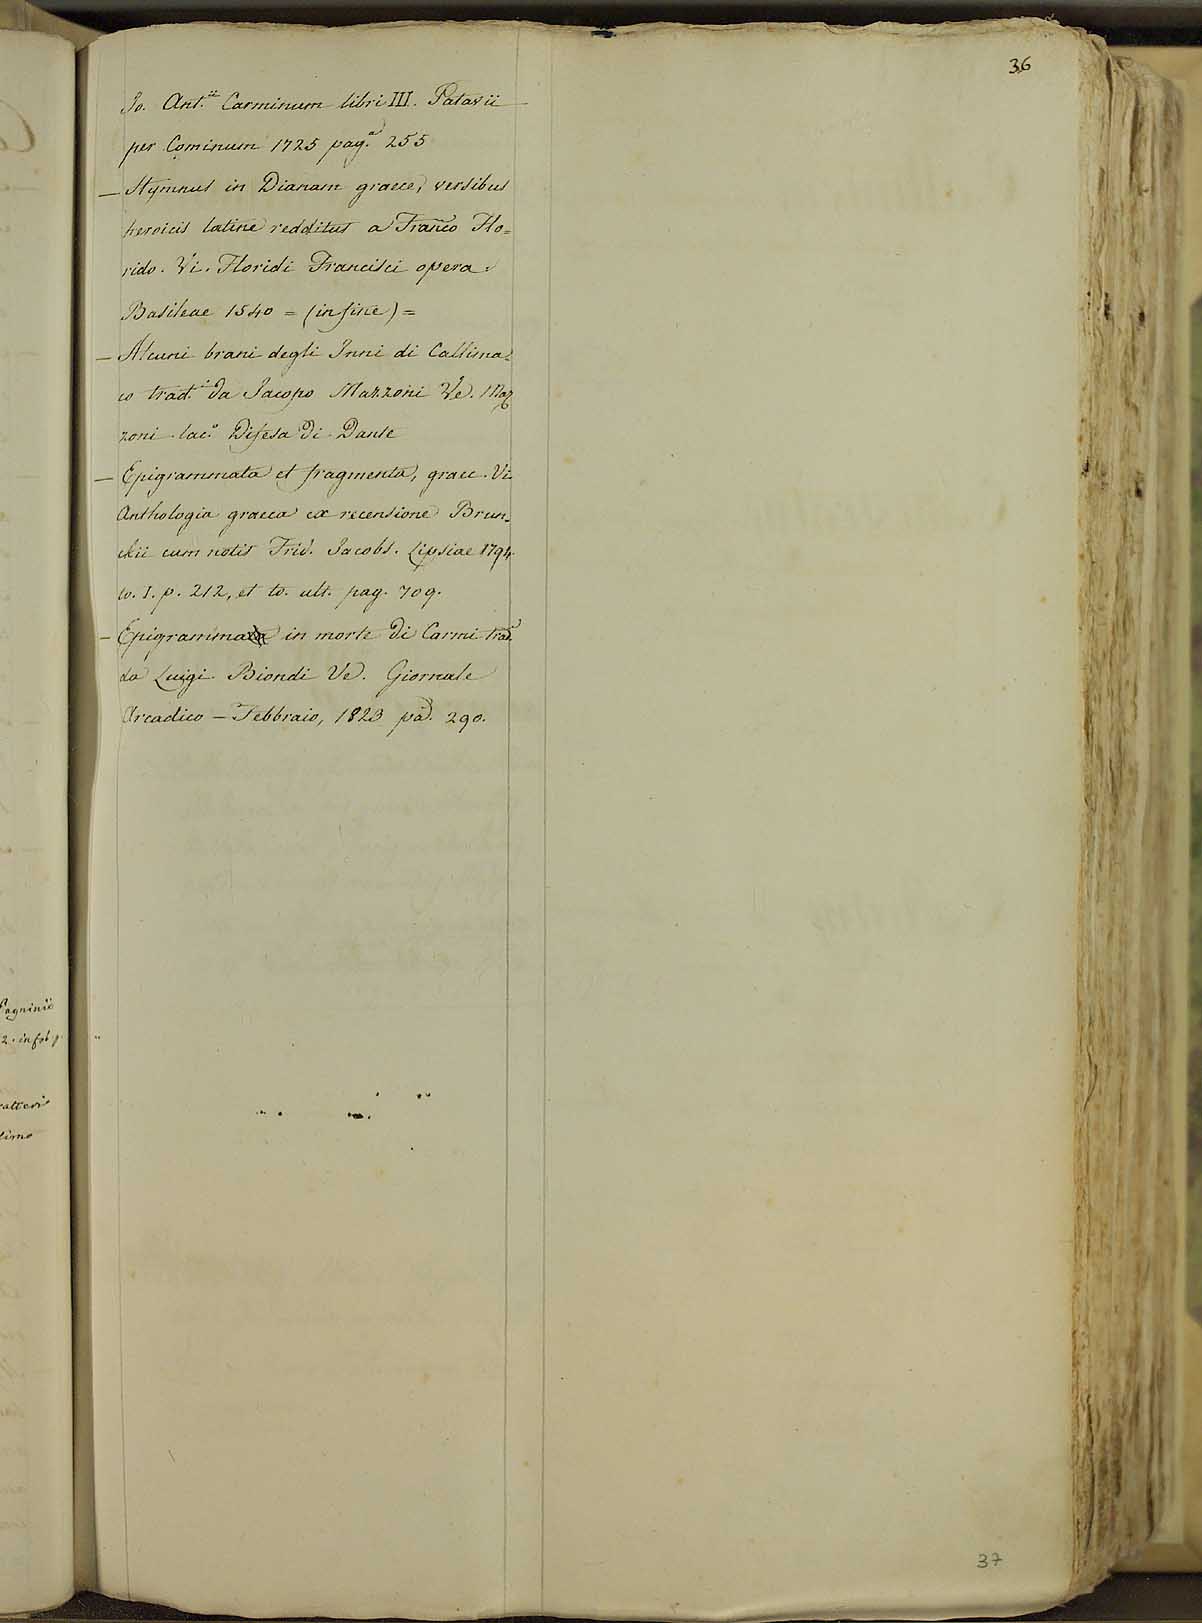 36
Jo. Ant.ii Carminum libri III. Patavii
per Cominum 1725 pag.a 255
— Hymnus in Dianam graece, versibus
heroicis latine redditus a Franco Flo=
rido. Vi. Floridi Francisci opera.
Basileae 1540 = (in fine) =
— Alcuni brani degli Inni di Callima=
co trad.i da Jacopo Mazzoni Ve. Maz
zoni Iac.o Difesa di Dante
— Epigrammata et fragmenta, graec. Vi.
Anthologia graeca ex recensione Brun=
ckii cum notis Frid. Jacobs. Lipsiae 1794.
to. I. p. 212, et to. ult. pag. 709.
— Epigramma in morte di Carmi trad.o
da Luigi Biondi Ve. Giornale
Arcadico — Febbraio, 1823 pag. 290.
Pagninii
2. in fol
ratteri
timo
37